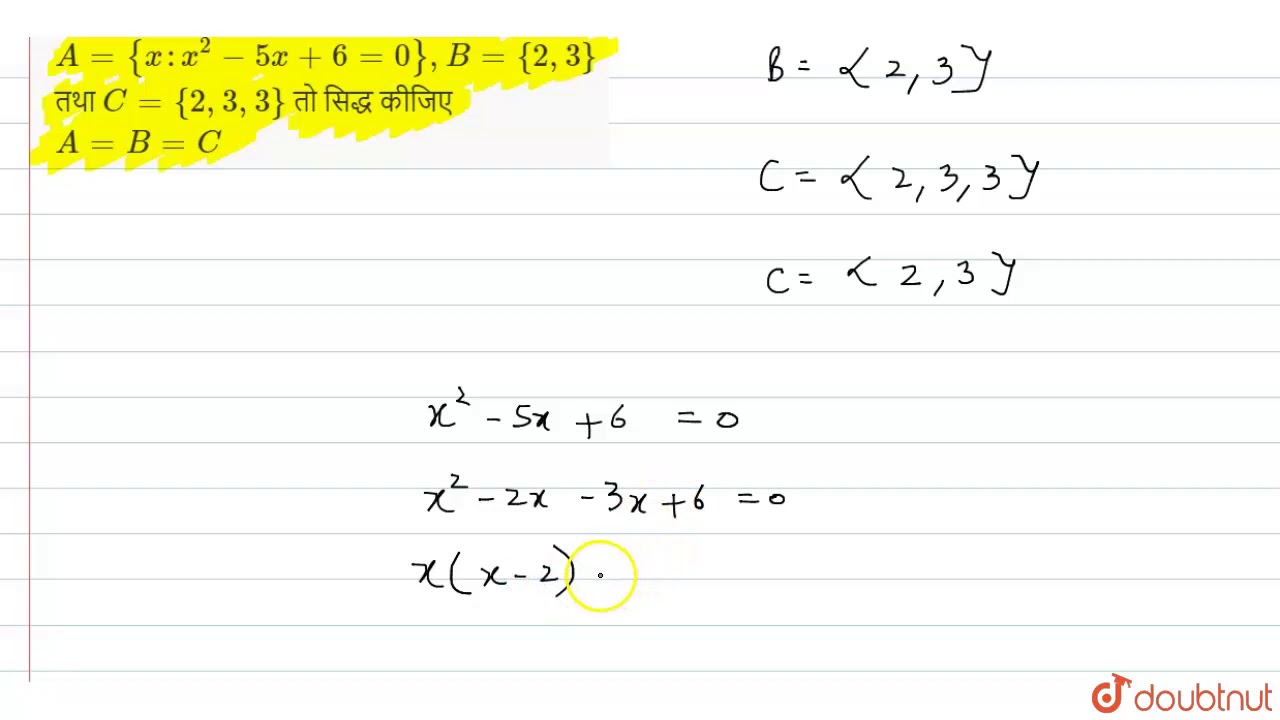 A = {x : x² − 5x + 6 = 0}, B = {2, 3}
तथा C = {2, 3, 3} तो सिद्ध कीजिए
A = B = C
B = { 2, 3 }
C = { 2, 3, 3 }
C = { 2, 3 }
x² - 5x + 6 = 0
x² - 2x - 3x + 6 = 0
x(x - 2)
doubtnut